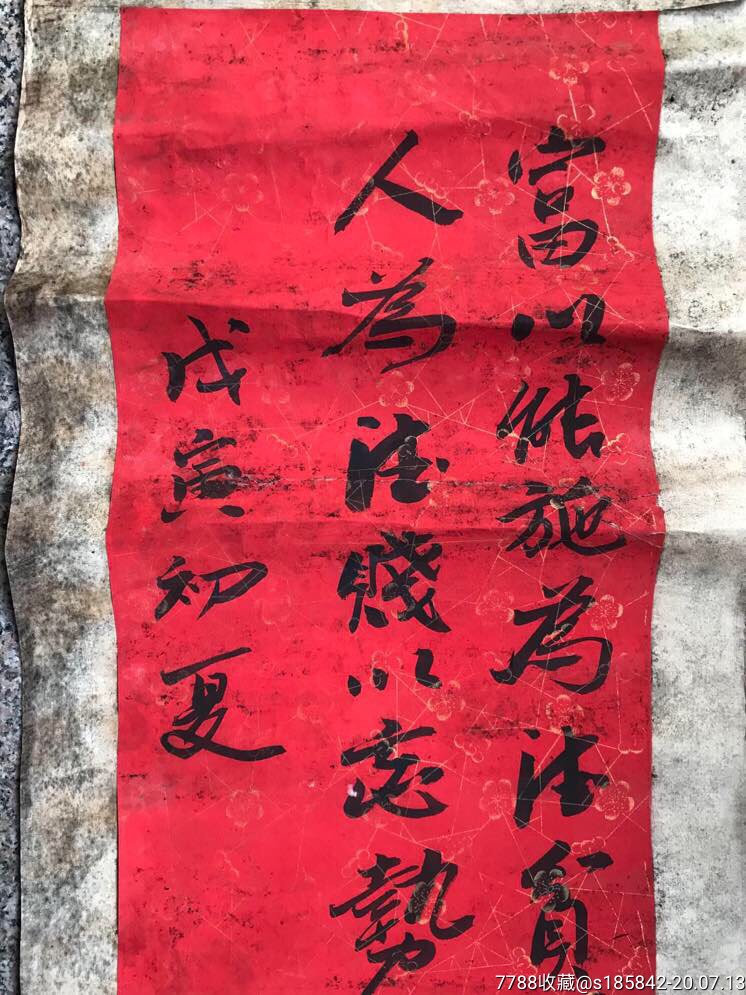 富以能施為德貧
人為德賤以忘勢
戊寅初夏
7788收藏@s185842-20.07.13